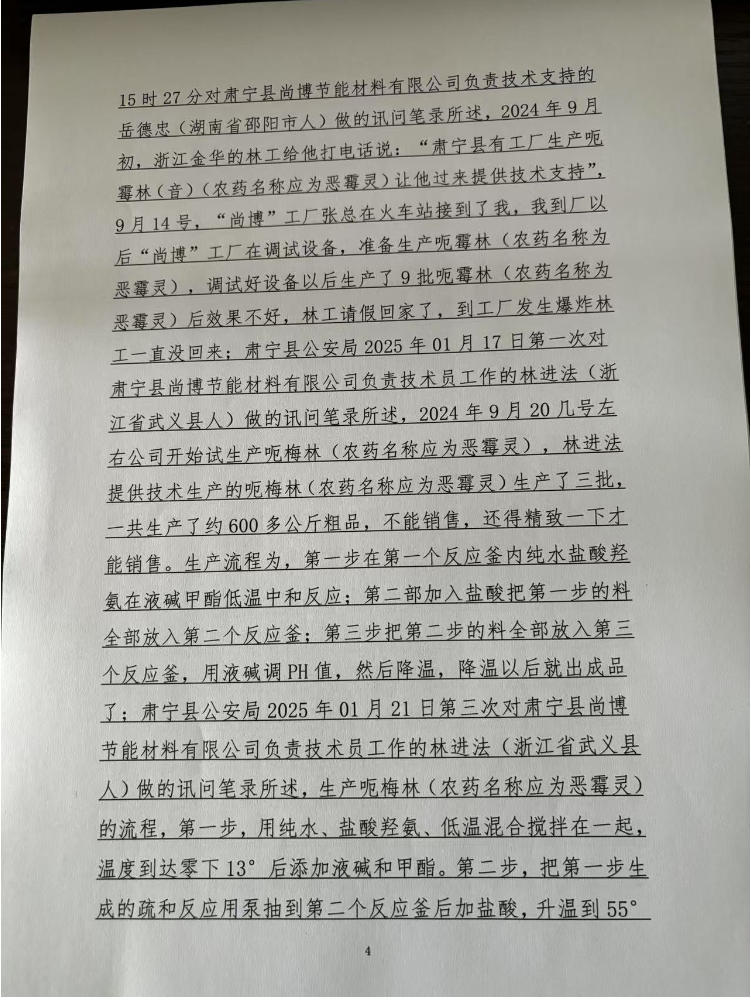 15时27分对肃宁县尚博节能材料有限公司负责技术支持的
岳德忠（湖南省邵阳市人）做的讯问笔录所述，2024年9月
初，浙江金华的林工给他打电话说：“肃宁县有工厂生产呃
霉林（音）（农药名称应为恶霉灵）让他过来提供技术支持”，
9月14号，“尚博”工厂张总在火车站接到了我，我到厂以
后“尚博”工厂在调试设备，准备生产呃霉林（农药名称为
恶霉灵），调试好设备以后生产了9批呃霉林（农药名称为
恶霉灵）后效果不好，林工请假回家了，到工厂发生爆炸林
工一直没回来；肃宁县公安局2025年01月17日第一次对
肃宁县尚博节能材料有限公司负责技术员工作的林进法（浙
江省武义县人）做的讯问笔录所述，2024年9月20几号左
右公司开始试生产呃梅林（农药名称应为恶霉灵），林进法
提供技术生产的呃梅林（农药名称应为恶霉灵）生产了三批，
一共生产了约600多公斤粗品，不能销售，还得精致一下才
能销售。生产流程为，第一步在第一个反应釜内纯水盐酸羟
氨在液碱甲酯低温中和反应；第二部加入盐酸把第一步的料
全部放入第二个反应釜；第三步把第二步的料全部放入第三
个反应釜，用液碱调PH值，然后降温，降温以后就出成品
了；肃宁县公安局2025年01月21日第三次对肃宁县尚博
节能材料有限公司负责技术员工作的林进法（浙江省武义县
人）做的讯问笔录所述，生产呃梅林（农药名称应为恶霉灵）
的流程，第一步，用纯水、盐酸羟氨、低温混合搅拌在一起，
温度到达零下13°后添加液碱和甲酯。第二步，把第一步生
成的疏和反应用泵抽到第二个反应釜后加盐酸，升温到55°
4